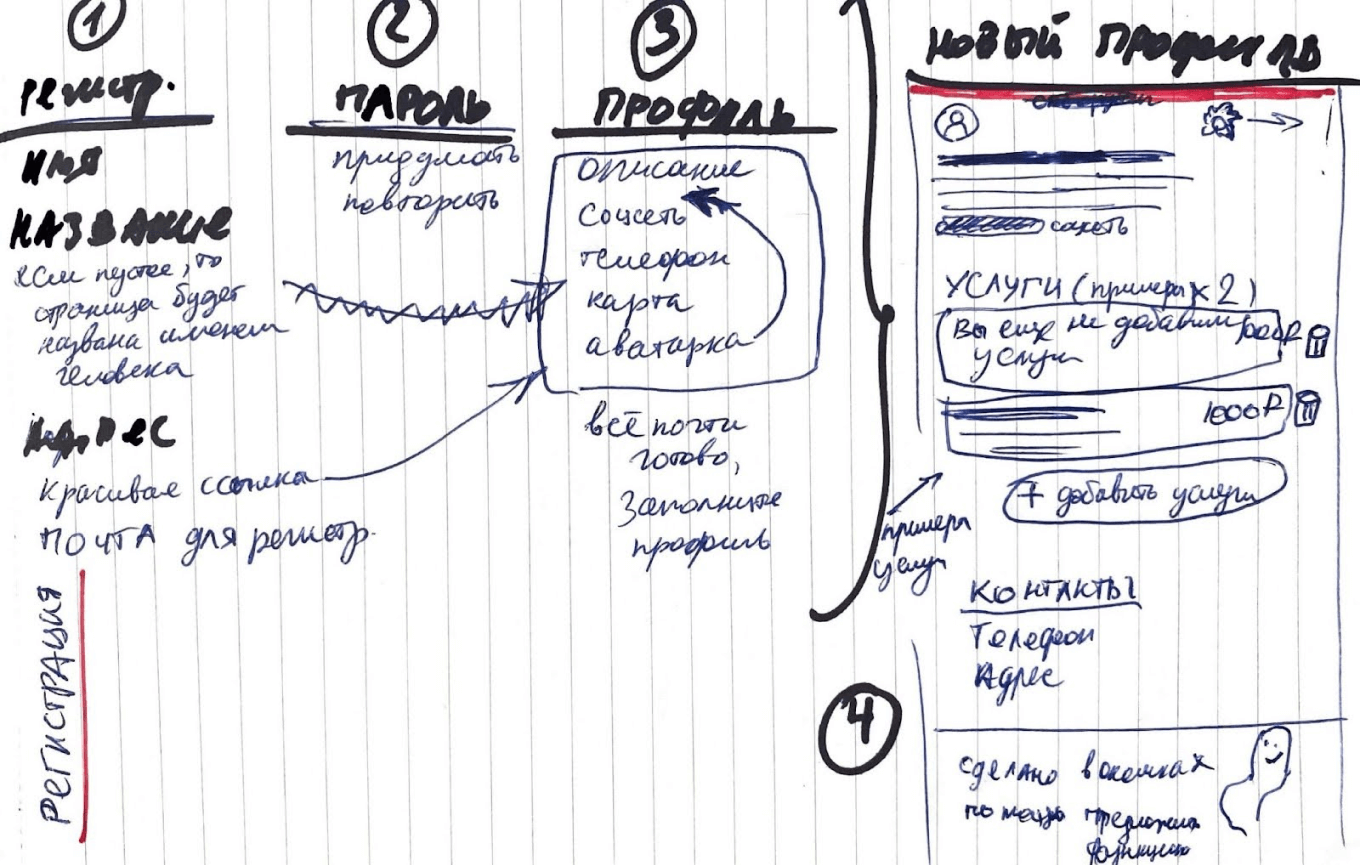 1
Регистр.
ИМЯ
НАЗВАНИЕ
если пустое, то
страница будет
названа именем
человека
АДРЕС
Красивая ссылка
ПОЧТА для регистр.
РЕГИСТРАЦИЯ
2
ПАРОЛЬ
придумать
повторить
3
ПРОФИЛЬ
описание
соцсеть
телефон
карта
аватарка
всё почти
готово,
Заполните
профиль
НОВЫЙ ПРОФИЛЬ
соцсеть
УСЛУГИ (примеры х 2)
Вы еще не добавили 1000₽
услуги
1000₽
+ добавить услугу
примеры
услуг
КОНТАКТЫ
Телефон
Адрес
4
сделано
предложить
функцию